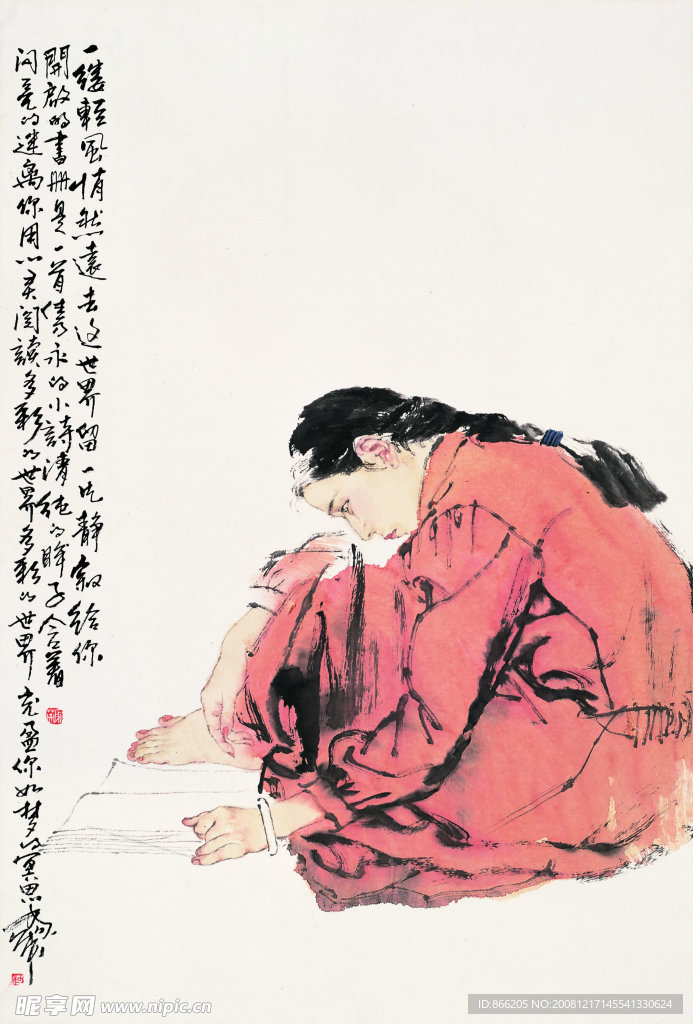 一缕輕風悄然遠去这世界留一片静寂给你
開啟的書册是一首隽永的小詩清纯的眸子含着
闪亮的迷离你用心灵阅讀多彩的世界多彩的世界充盈你如梦的冥思
昵享网 www.nipic.cn
ID:866205 NO:20081217145541330624